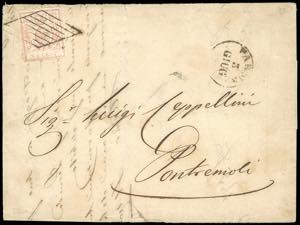 PAR
GIUG
Sig.r Luigi Cappellini
Pontremoli